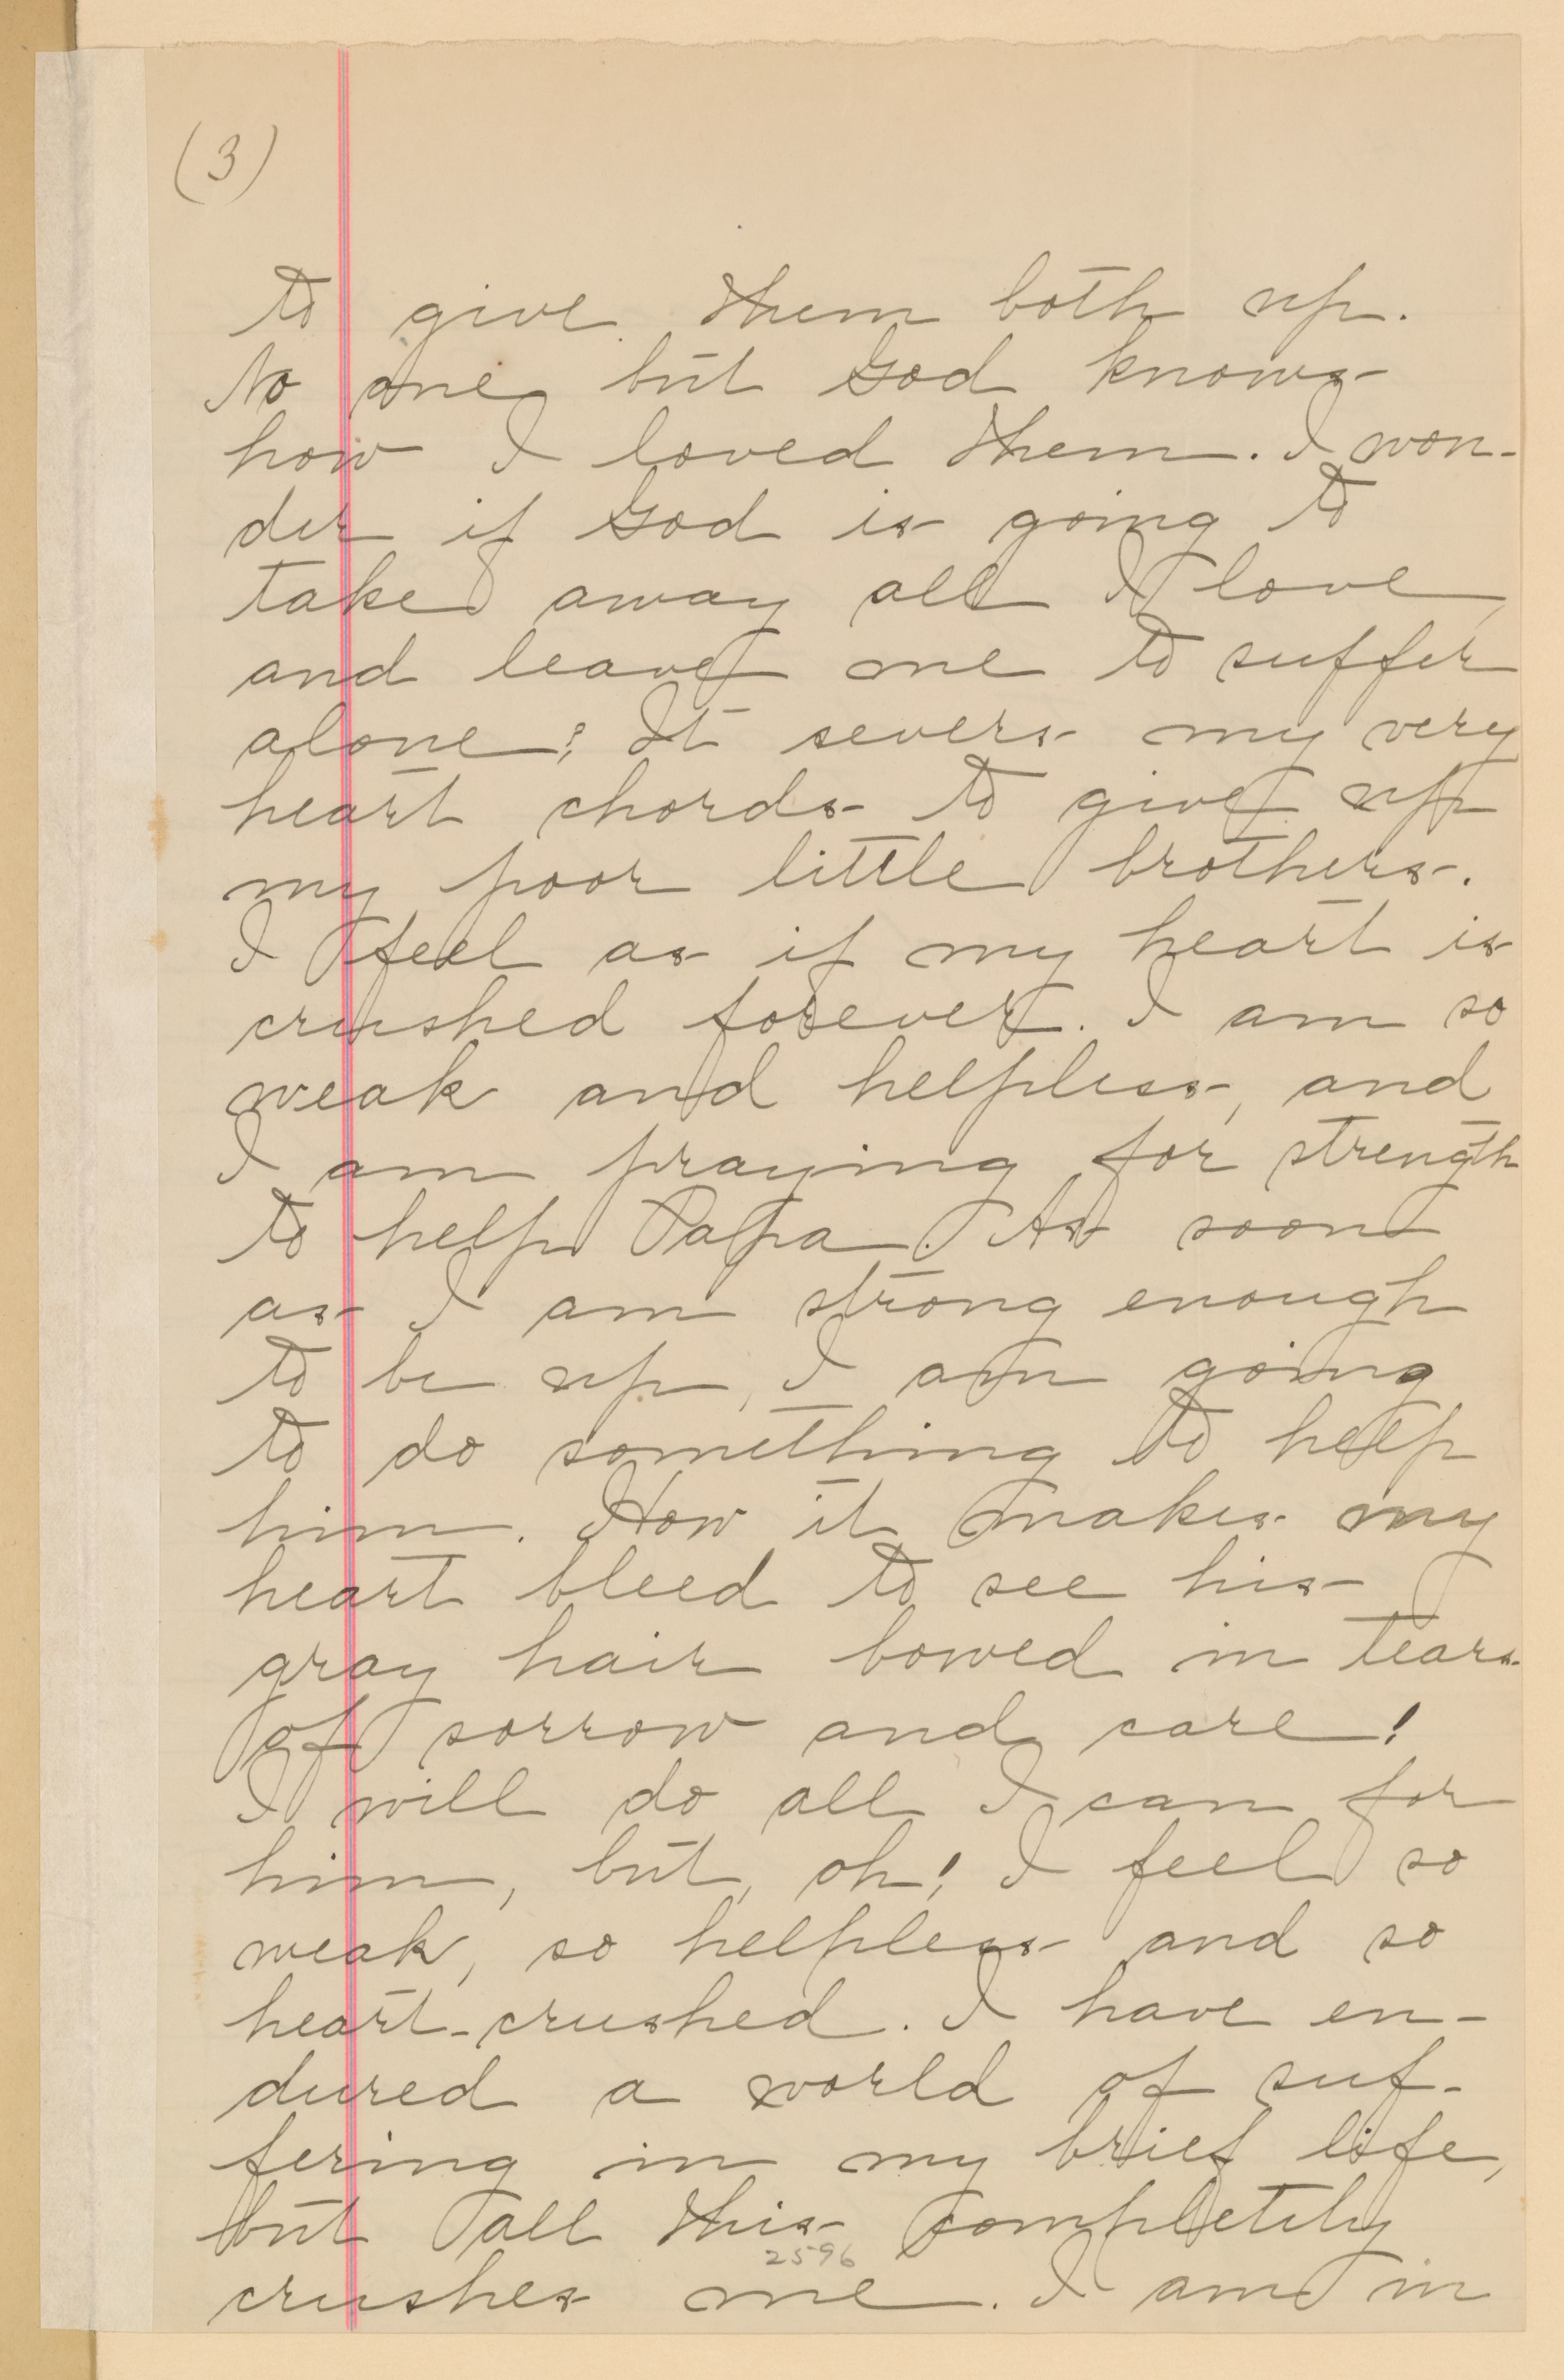 (3)
to give them both up.
No one but God knows
how I loved them. I won-
der if God is going to
take away all I love,
and leave me to suffer
alone; It severs my very
heart chords to give up
my poor little brothers.
I feel as if my heart is
crushed forever. I am so
weak and helpless, and
I am praying for strength
to help Papa. As soon
as I am strong enough
to be up, I am going
to do something to help
him. How it makes my
heart bleed to see his
gray hair bowed in tears
of sorrow and care!
I will do all I can for
him, but, oh! I feel so
weak, so helpless and so
heart-crushed. I have en-
dured a world of suf-
fering in my brief life,
but all this completely
2596
crushes me. I am in